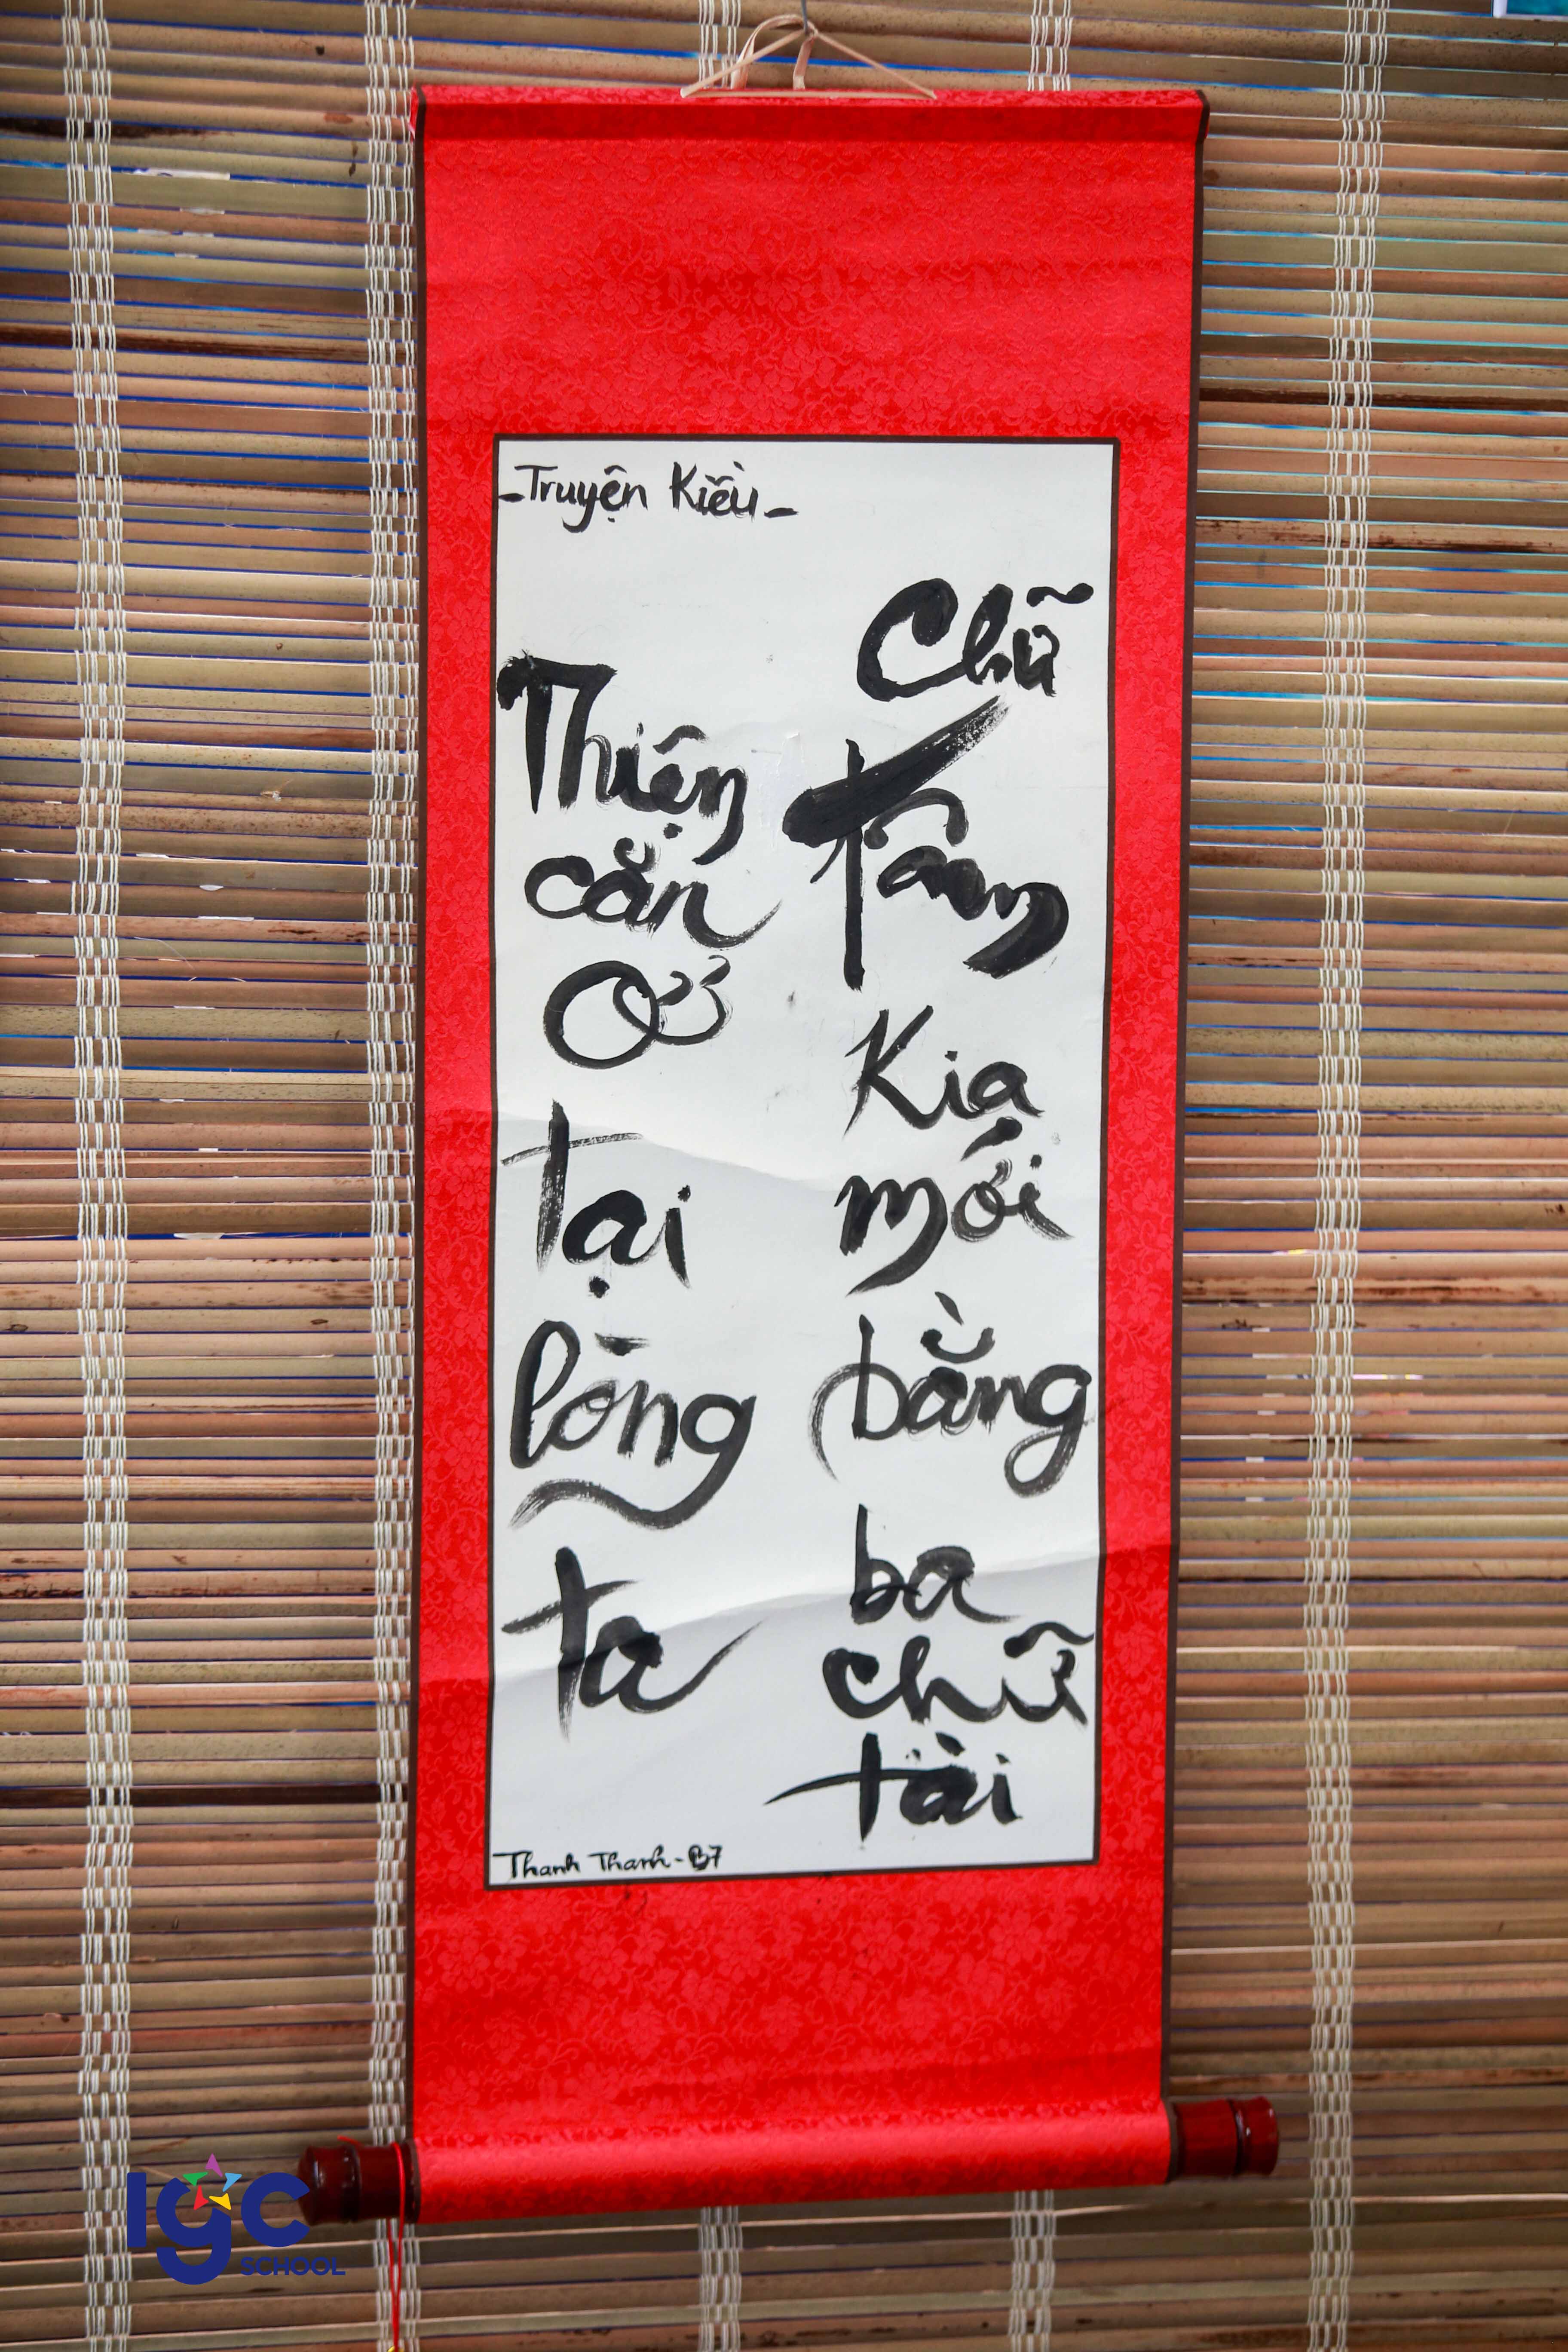 -Truyện Kiều-
Thiện
căn
ở
tại
lòng
ta
Chữ
tâm
Kia
mới
bằng
ba
chữ
tài
Thanh Thanh - B7
IGC
SCHOOL